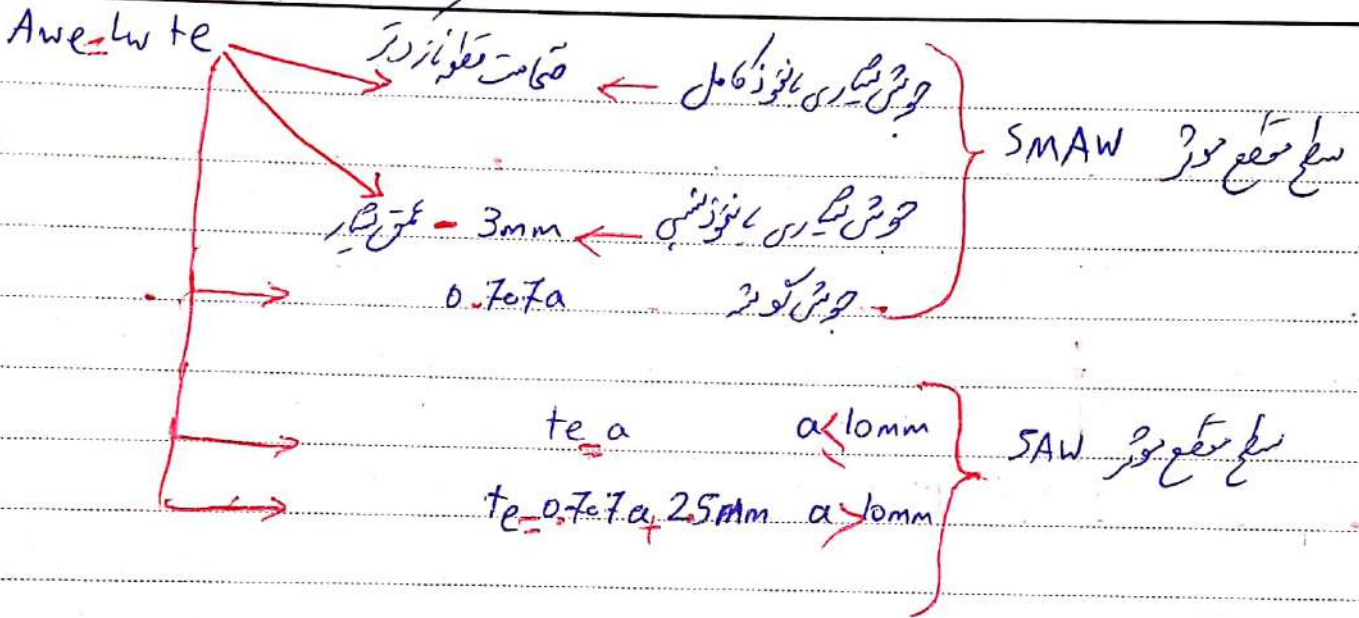 Awe = lw te
سطح مقطع موثر SMAW
جوش شیاری با نفوذ کامل ← ضخامت قطعه نازک‌تر
جوش شیاری با نفوذ نسبی ← 3mm - عمق شیار
جوش گوشه 0.707a
سطح مقطع موثر SAW
te = a a ≤ 10mm
te = 0.707a + 2.5mm a > 10mm